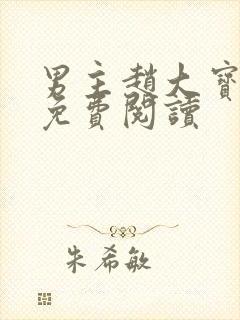 男主趙大寶
免費閱讀
朱希敏